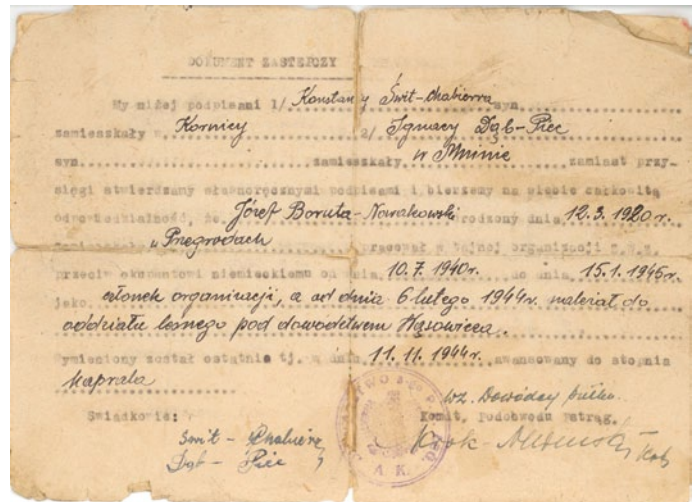 DOKUMENT ZASTĘPCZY
My niżej podpisani 1/ Konstanty Świt-Chabiera syn
zamieszkały w Kornicy 2/ Ignacy Dąb-Piec
syn zamieszkały w Mninie zamiast przy-
sięgi stwierdzamy własnoręcznymi podpisami i bierzemy na siebie całkowitą
odpowiedzialność, że Józef Boruta-Nowakowski rodzony dnia 12.3.1920 r.
w Przegrodach pracował w tajnej organizacji
przeciw okupantowi niemieckiemu od dnia 10.7.1940r. do dnia 15.1.1945r.
jako członek organizacji, a od dnia 6 lutego 1944r. należał do
oddziału leśnego pod dowództwem
Wymieniony został ostatnio tj. w dniu 11.11.1944r. awansowany do stopnia
kaprala
wz. Dowódcy pułku
Świadkowie: Komdt. Podobwodu
Świt - Chabiera
Dąb - Piec
A. K.